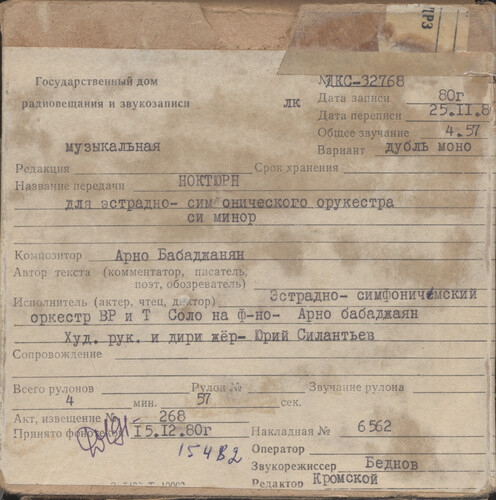 ЛРЗ
Государственный дом
радиовещания и звукозаписи
ЛК
№ ДКС-32768
Дата записи 80г
Дата переписи 25.II.8
Общее звучание 4.57
Вариант дубль моно
музыкальная
Редакция
Срок хранения
Название передачи НОКТЮРН
для эстрадно- сим онического орукестра
си минор
Композитор Арно Бабаджанян
Автор текста (комментатор, писатель,
поэт, обозреватель)
Исполнитель (актер, чтец, диктор) Эстрадно- симфонический
оркестр ВР и Т Соло на ф-но- Арно бабаджаян
Худ. рук. и дири жёр- Юрий Силантьев
Сопровождение
Всего рулонов Рулон № Звучание рулона
4 мин. 57 сек.
Акт, извещение № 268
Принято фонотекой 15.12.80г
Накладная № 6562
154В2
Оператор
Звукорежиссер Беднов
Редактор Кромской